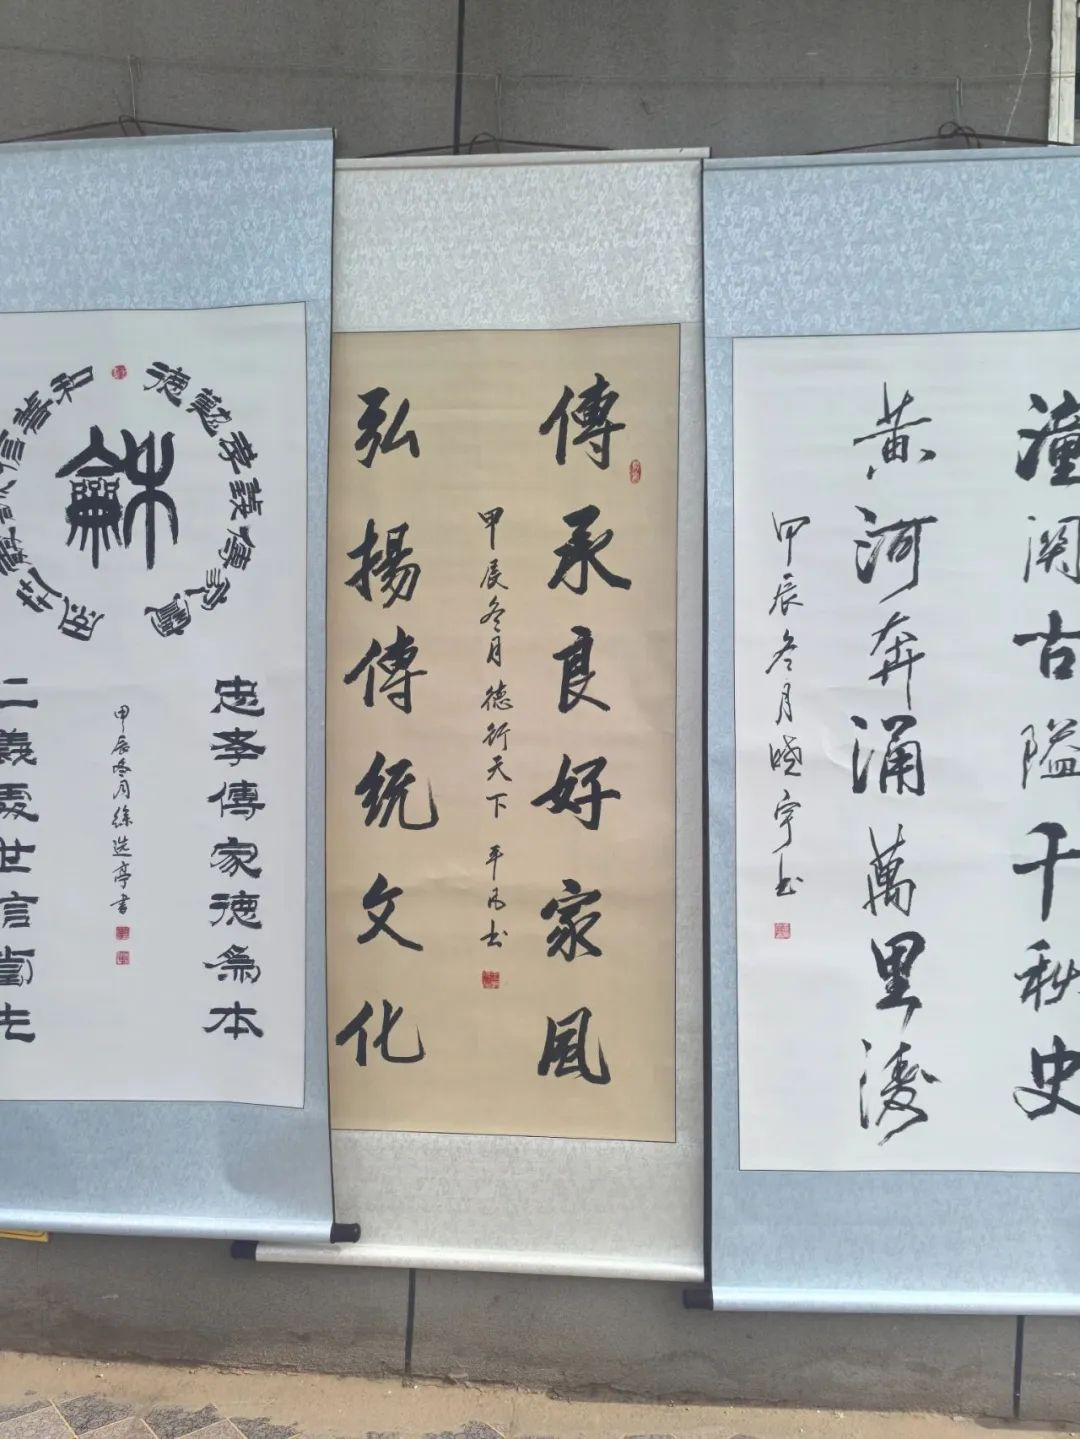 潼関古隘千秋史
黄河奔涌萬里濤
甲辰冬月曉宇书
傳承良好家風
甲辰冬月德行天下平凡书
弘揚傳統文化
德懿孝義傳家寶
龢
忠孝傳家德為本
甲辰冬月徐选亭書
仁義処世信當先